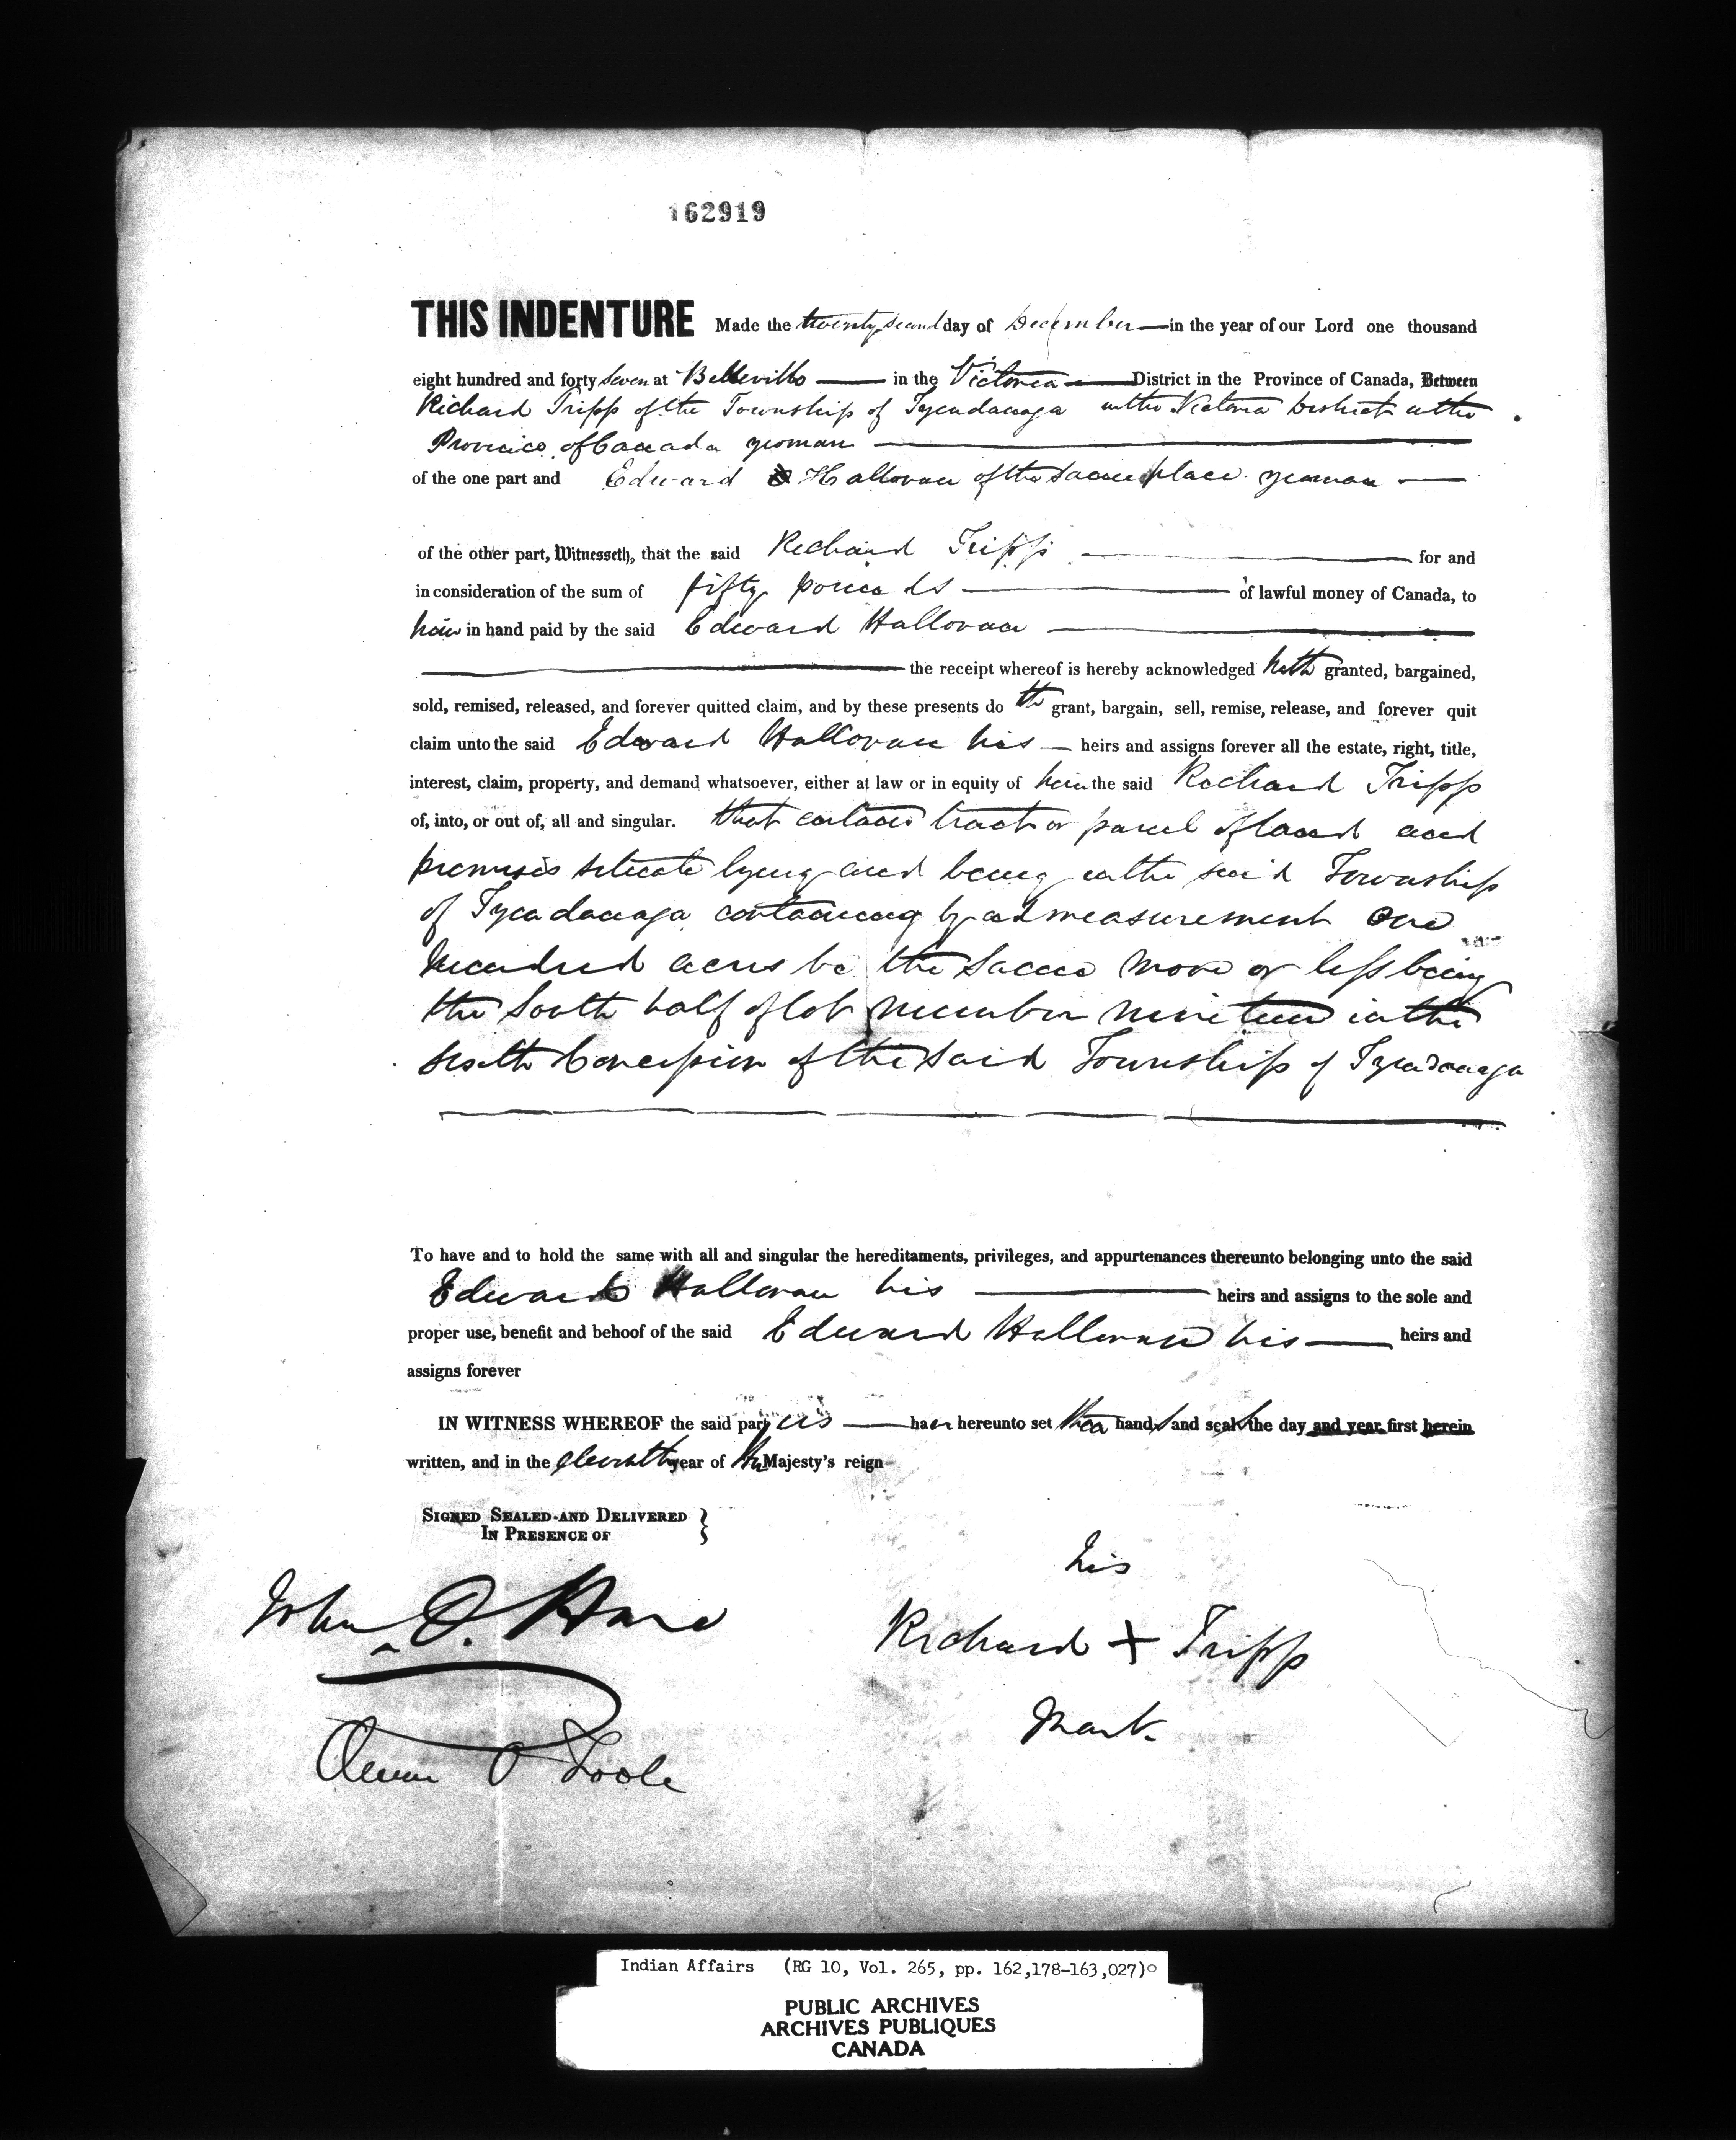 162919
THIS INDENTURE Made the twenty second day of December in the year of our Lord one thousand
eight hundred and forty seven at Belleville in the Victoria District in the Province of Canada, Between
Richard Tripp of the Township of Tyendanaga in the Victoria District in the
Province of Canada yeoman
of the one part and Edward Halloran of the same place yeoman
of the other part, Witnesseth, that the said Richard Tripp for and
in consideration of the sum of fifty pounds of lawful money of Canada, to
him in hand paid by the said Edward Halloran
the receipt whereof is hereby acknowledged hath granted, bargained,
sold, remised, released, and forever quitted claim, and by these presents do th grant, bargain, sell, remise, release, and forever quit
claim unto the said Edward Halloran his heirs and assigns forever all the estate, right, title,
interest, claim, property, and demand whatsoever, either at law or in equity of him the said Richard Tripp
of, into, or out of, all and singular. that certain tract or parcel of land and
premises situate lying and being in the said Township
of Tyendanaga containing by admeasurement One
hundred acres be the same more or less being
the South half of lot number nineteen in the
sixth Concession of the said Township of Tyendanaga
To have and to hold the same with all and singular the hereditaments, privileges, and appurtenances thereunto belonging unto the said
Edward Halloran his heirs and assigns to the sole and
proper use, benefit and behoof of the said Edward Halloran his heirs and
assigns forever
IN WITNESS WHEREOF the said part ies ha hereunto set hands and seals the day and year first herein
written, and in the eleventh year of Her Majesty's reign
SIGNED SEALED AND DELIVERED
IN PRESENCE OF }
his
John O. Hare
Richard + Tripp
Mark
Owen O Toole
Indian Affairs (RG 10, Vol. 265, pp. 162,178-163,027)
PUBLIC ARCHIVES
ARCHIVES PUBLIQUES
CANADA